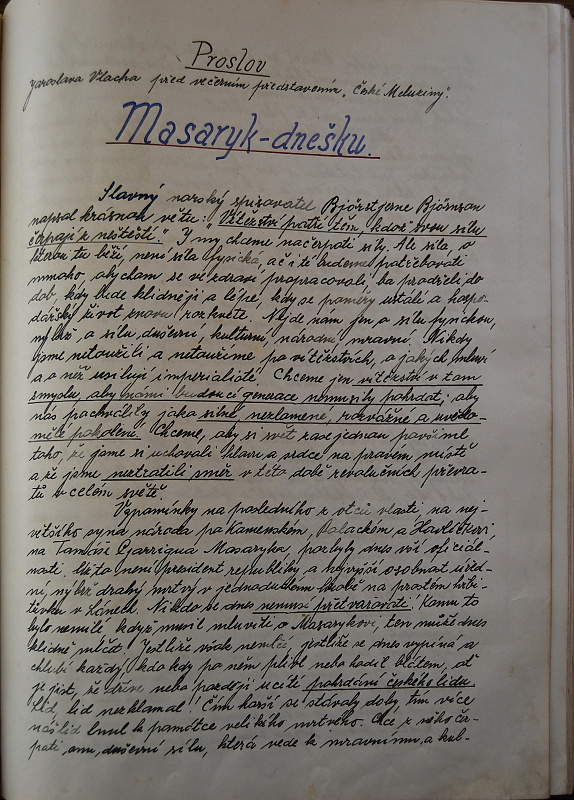 Proslov
Jaroslava Vlacha před večerním představením „České Meluziny".
Masaryk-dnešku.
Slavný norský spisovatel Björstjerne Björnson
napsal krásnou větu: „Vítězství patří těm, kdož svou sílu
čerpají z neštěstí." I my chceme načerpati síly. Ale síla, o
kterou tu běží, není síla fysická, ač i té budeme potřebovati
mnoho, abychom se ve zdraví propracovali, ba prodřeli do
dob, kdy bude klidněji a lépe, kdy se poměry ustálí a hospo-
dářský život znovu rozkvete. Nejde nám jen o sílu fysickou,
nýbrž, o sílu duševní, kulturní, národní, mravní. Nikdy
jsme netoužili a netoužíme po vítězstvích, o jakých mluví
a o něž usilují imperialisté. Chceme jen vítězství v tom
smyslu, aby námi budoucí generace nemusily pohrdat, aby
nás pochválily jako silné, nezlomené, rozvážné a uvědo-
mělé pokolení. Chceme, aby si svět zase jednou povšiml
toho, že jsme si uchovali hlavu a srdce na pravém místě
a že jsme neztratili směr v této době revolučních převra-
tů v celém světě.
Vzpomínky na posledního z otců vlasti, na nej-
většího syna národa po Komenském, Palackém a Havlíčkovi,
na Tomáše Garrigua Masaryka, pozbyly dnes vší oficiál-
nosti. Už to není president republiky a nejvyšší osobnost úřed-
ní, nýbrž drahý mrtvý v jednoduchém hrobě na prostém hřbi-
tůvku v Lánech. Nikdo se dnes nemusí přetvařovati. Komu to
bylo nemilé, když musil mluviti o Masarykovi, ten může dnes
klidně mlčet. Jestliže však nemlčí, jestliže se dnes vypíná a
chlubí každý, kdo kdy po něm plivl nebo hodil blátem, ať
je jist, že dříve nebo později ucítí pohrdání českého lidu.
lid nezklamal! Čím horší se stávaly doby, tím více
náš lid lnul k památce velikého mrtvého. Chce z něho čer-
pati onu duševní sílu, která vede k mravnímu a kul-